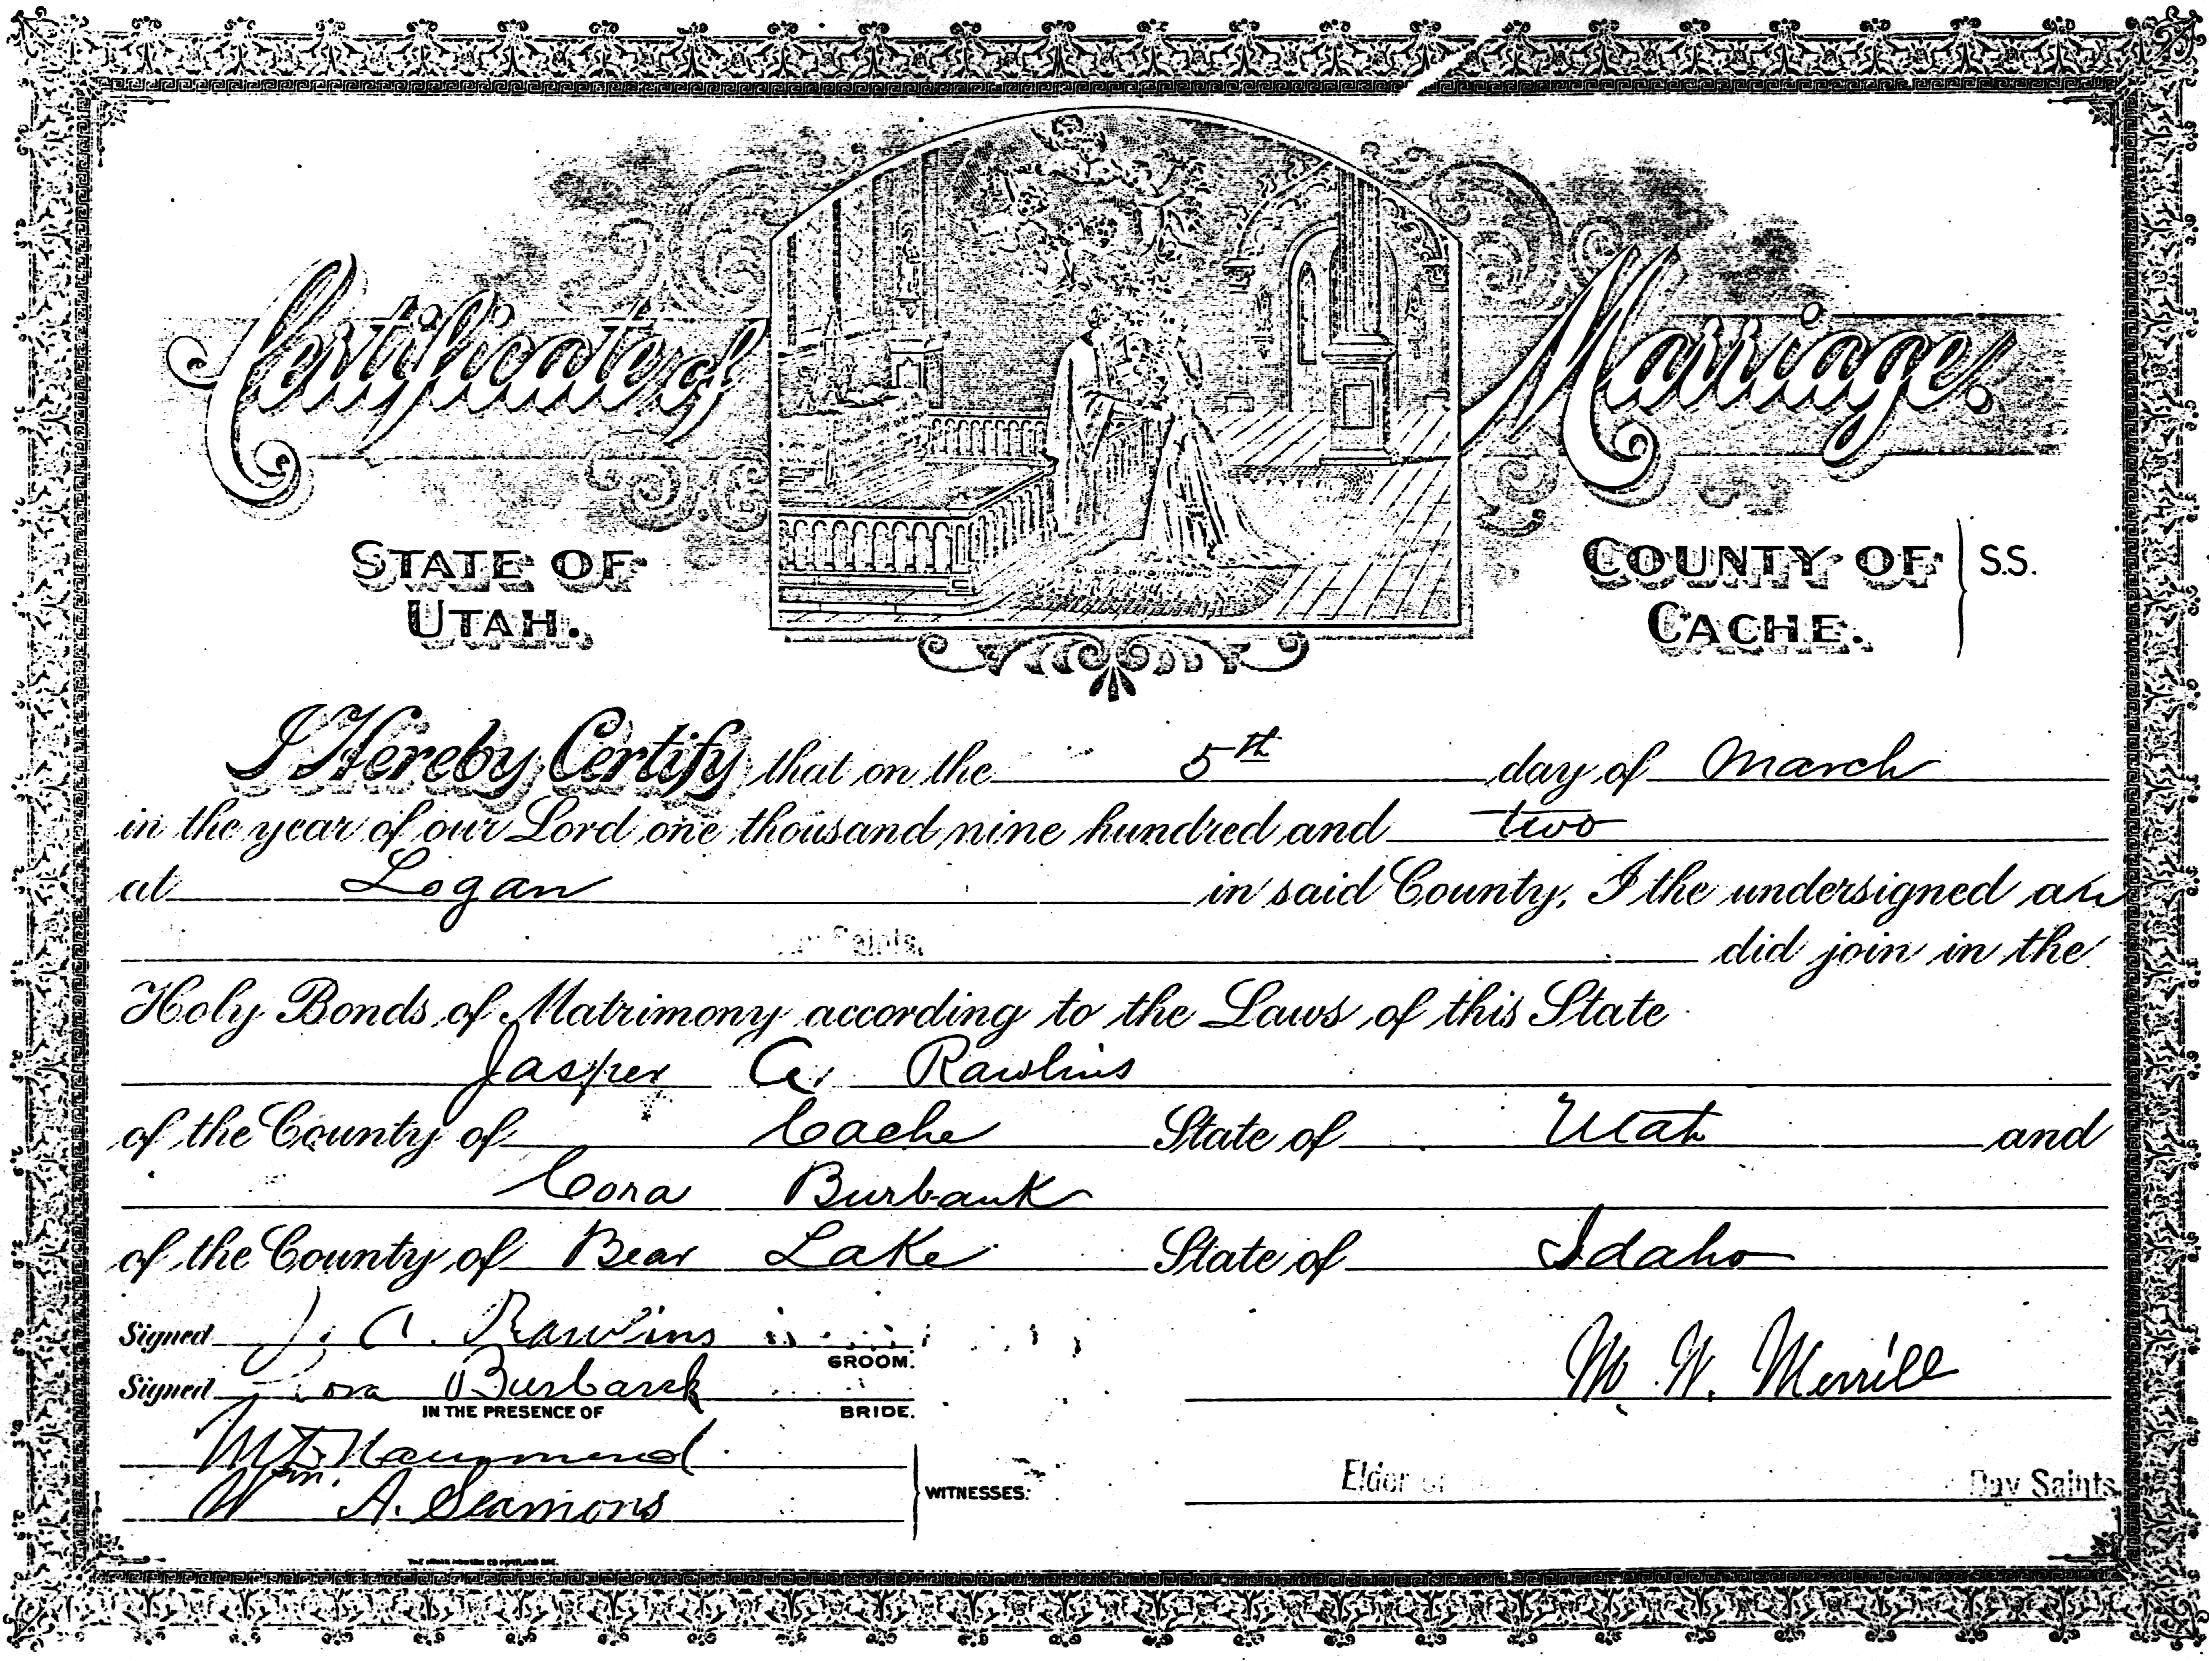 Certificate of Marriage.
STATE OF UTAH.
COUNTY OF CACHE. } S.S.
I Hereby Certify that on the 5th day of March
in the year of our Lord one thousand nine hundred and two
at Logan in said County, I the undersigned an
Saints. did join in the
Holy Bonds of Matrimony according to the Laws of this State
Jasper A. Rawlins
of the County of Cache State of Utah and
Cora Burbank
of the County of Bear Lake State of Idaho
Signed J. A. Rawlins
GROOM.
Signed Cora Burbank
M. W. Merrill
IN THE PRESENCE OF BRIDE.
Hammond
Wm. A. Seamons
WITNESSES:
Elder of Day Saints